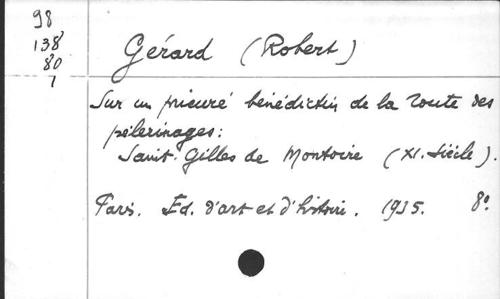 98
138
80
1
Gérard (Robert)
Sur un prieuré bénédictin de la route des
pèlerinages:
Saint-Gilles de Montoire (XI. siècle).
Paris. Ed. d'art et d'histoire. 1935. 8°